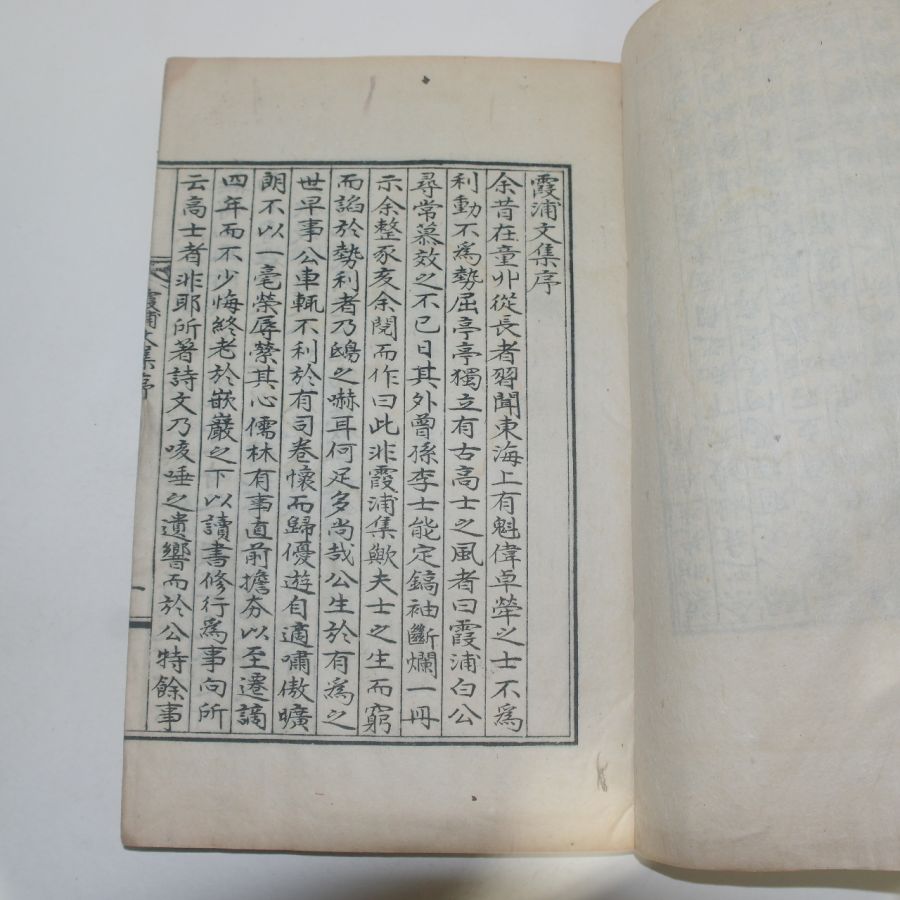 霞浦文集序
余昔在童丱從長者習聞東海上有魁偉卓犖之士不爲
利動不爲勢屈亭亭獨立有古高士之風者曰霞浦白公
尋常慕效之不已日其外曾孫李士能定鎬袖斷爛一冊
示余整豕亥余閱而作曰此非霞浦集歟夫士之生而窮
而諂於勢利者乃鴟之嚇耳何足多尙哉公生於有爲之
世早事公車輒不利於有司卷懷而歸優遊自適嘯傲曠
朗不以一毫榮辱縈其心儒林有事直前擔夯以至遷謫
四年而不少悔終老於嵌巖之下以讀書修行爲事向所
云高士者非耶所著詩文乃咳唾之遺響而於公特餘事
霞浦文集序
一